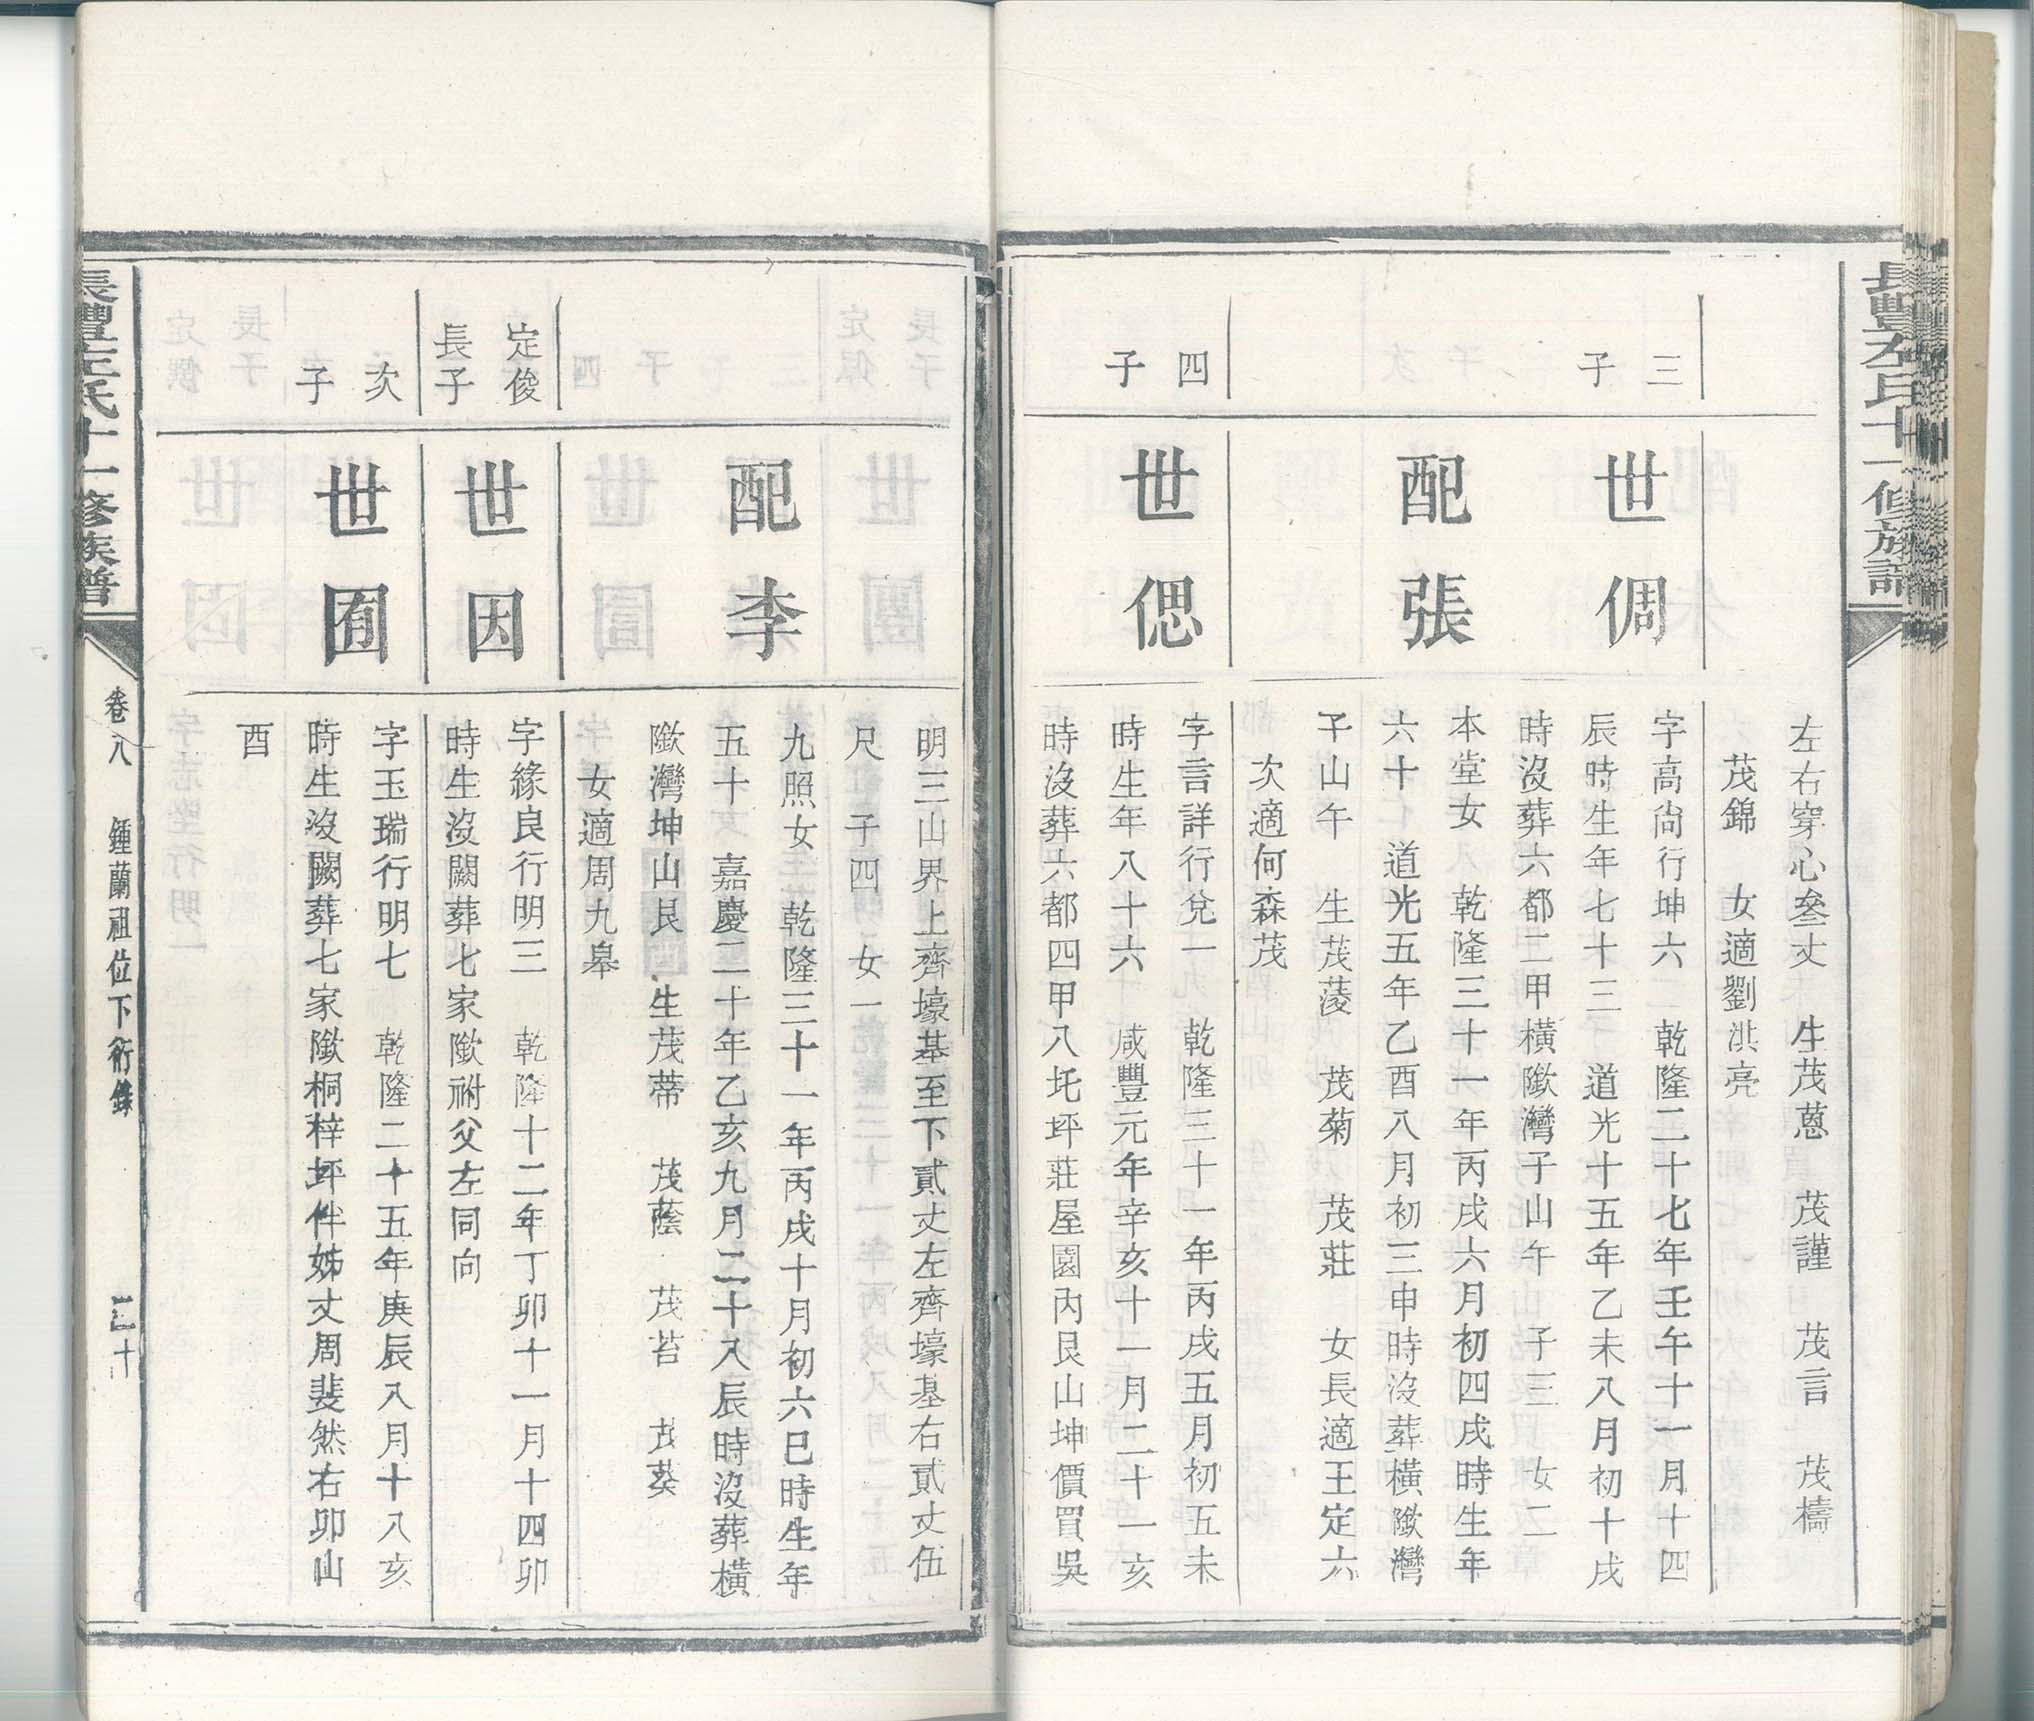 長豐左氏十一修族譜
左右穿心叄丈　生茂蒽　茂謹　茂言　茂檮
茂錦　女適劉洪亮
三
子
世倜
字高尙行坤六　乾隆二十七年壬午十一月十四
辰時生年七十三　道光十五年乙未八月初十戌
時沒葬六都二甲橫隞灣子山午　子三　女二
配張
本堂女　乾隆三十一年丙戌六月初四戌時生年
六十　道光五年乙酉八月初三申時沒葬橫隞灣
子山午　生茂蓤　茂菊　茂莊　女長適王定六
次適何森茂
四
子
世偲
字言詳行兌一　乾隆三十一年丙戌五月初五未
時生年八十六　咸豐元年辛亥十一月二十一亥
時沒葬六都四甲八圫坪莊屋園內艮山坤價買吳
明三山界上齊壕基至下貳丈左齊壕基右貳丈伍
尺　子四　女一
配李
九照女　乾隆三十一年丙戌十月初六巳時生年
五十　嘉慶二十年乙亥九月二十八辰時沒葬橫
隞灣坤山艮　生茂蒂　茂蔭　茂苔　茂葵
女適周九皋
定俊
長子
世因
字緣良行明三　乾隆十二年丁卯十一月十四卯
時生沒闕葬七家隞祔父左同向
次
子
世囿
字玉瑞行明七　乾隆二十五年庚辰八月十八亥
時生沒闕葬七家隞桐梓坪伴姊丈周斐然右卯山
酉
長豐左氏十一修族譜
卷八　鍾蘭祖位下衍錄